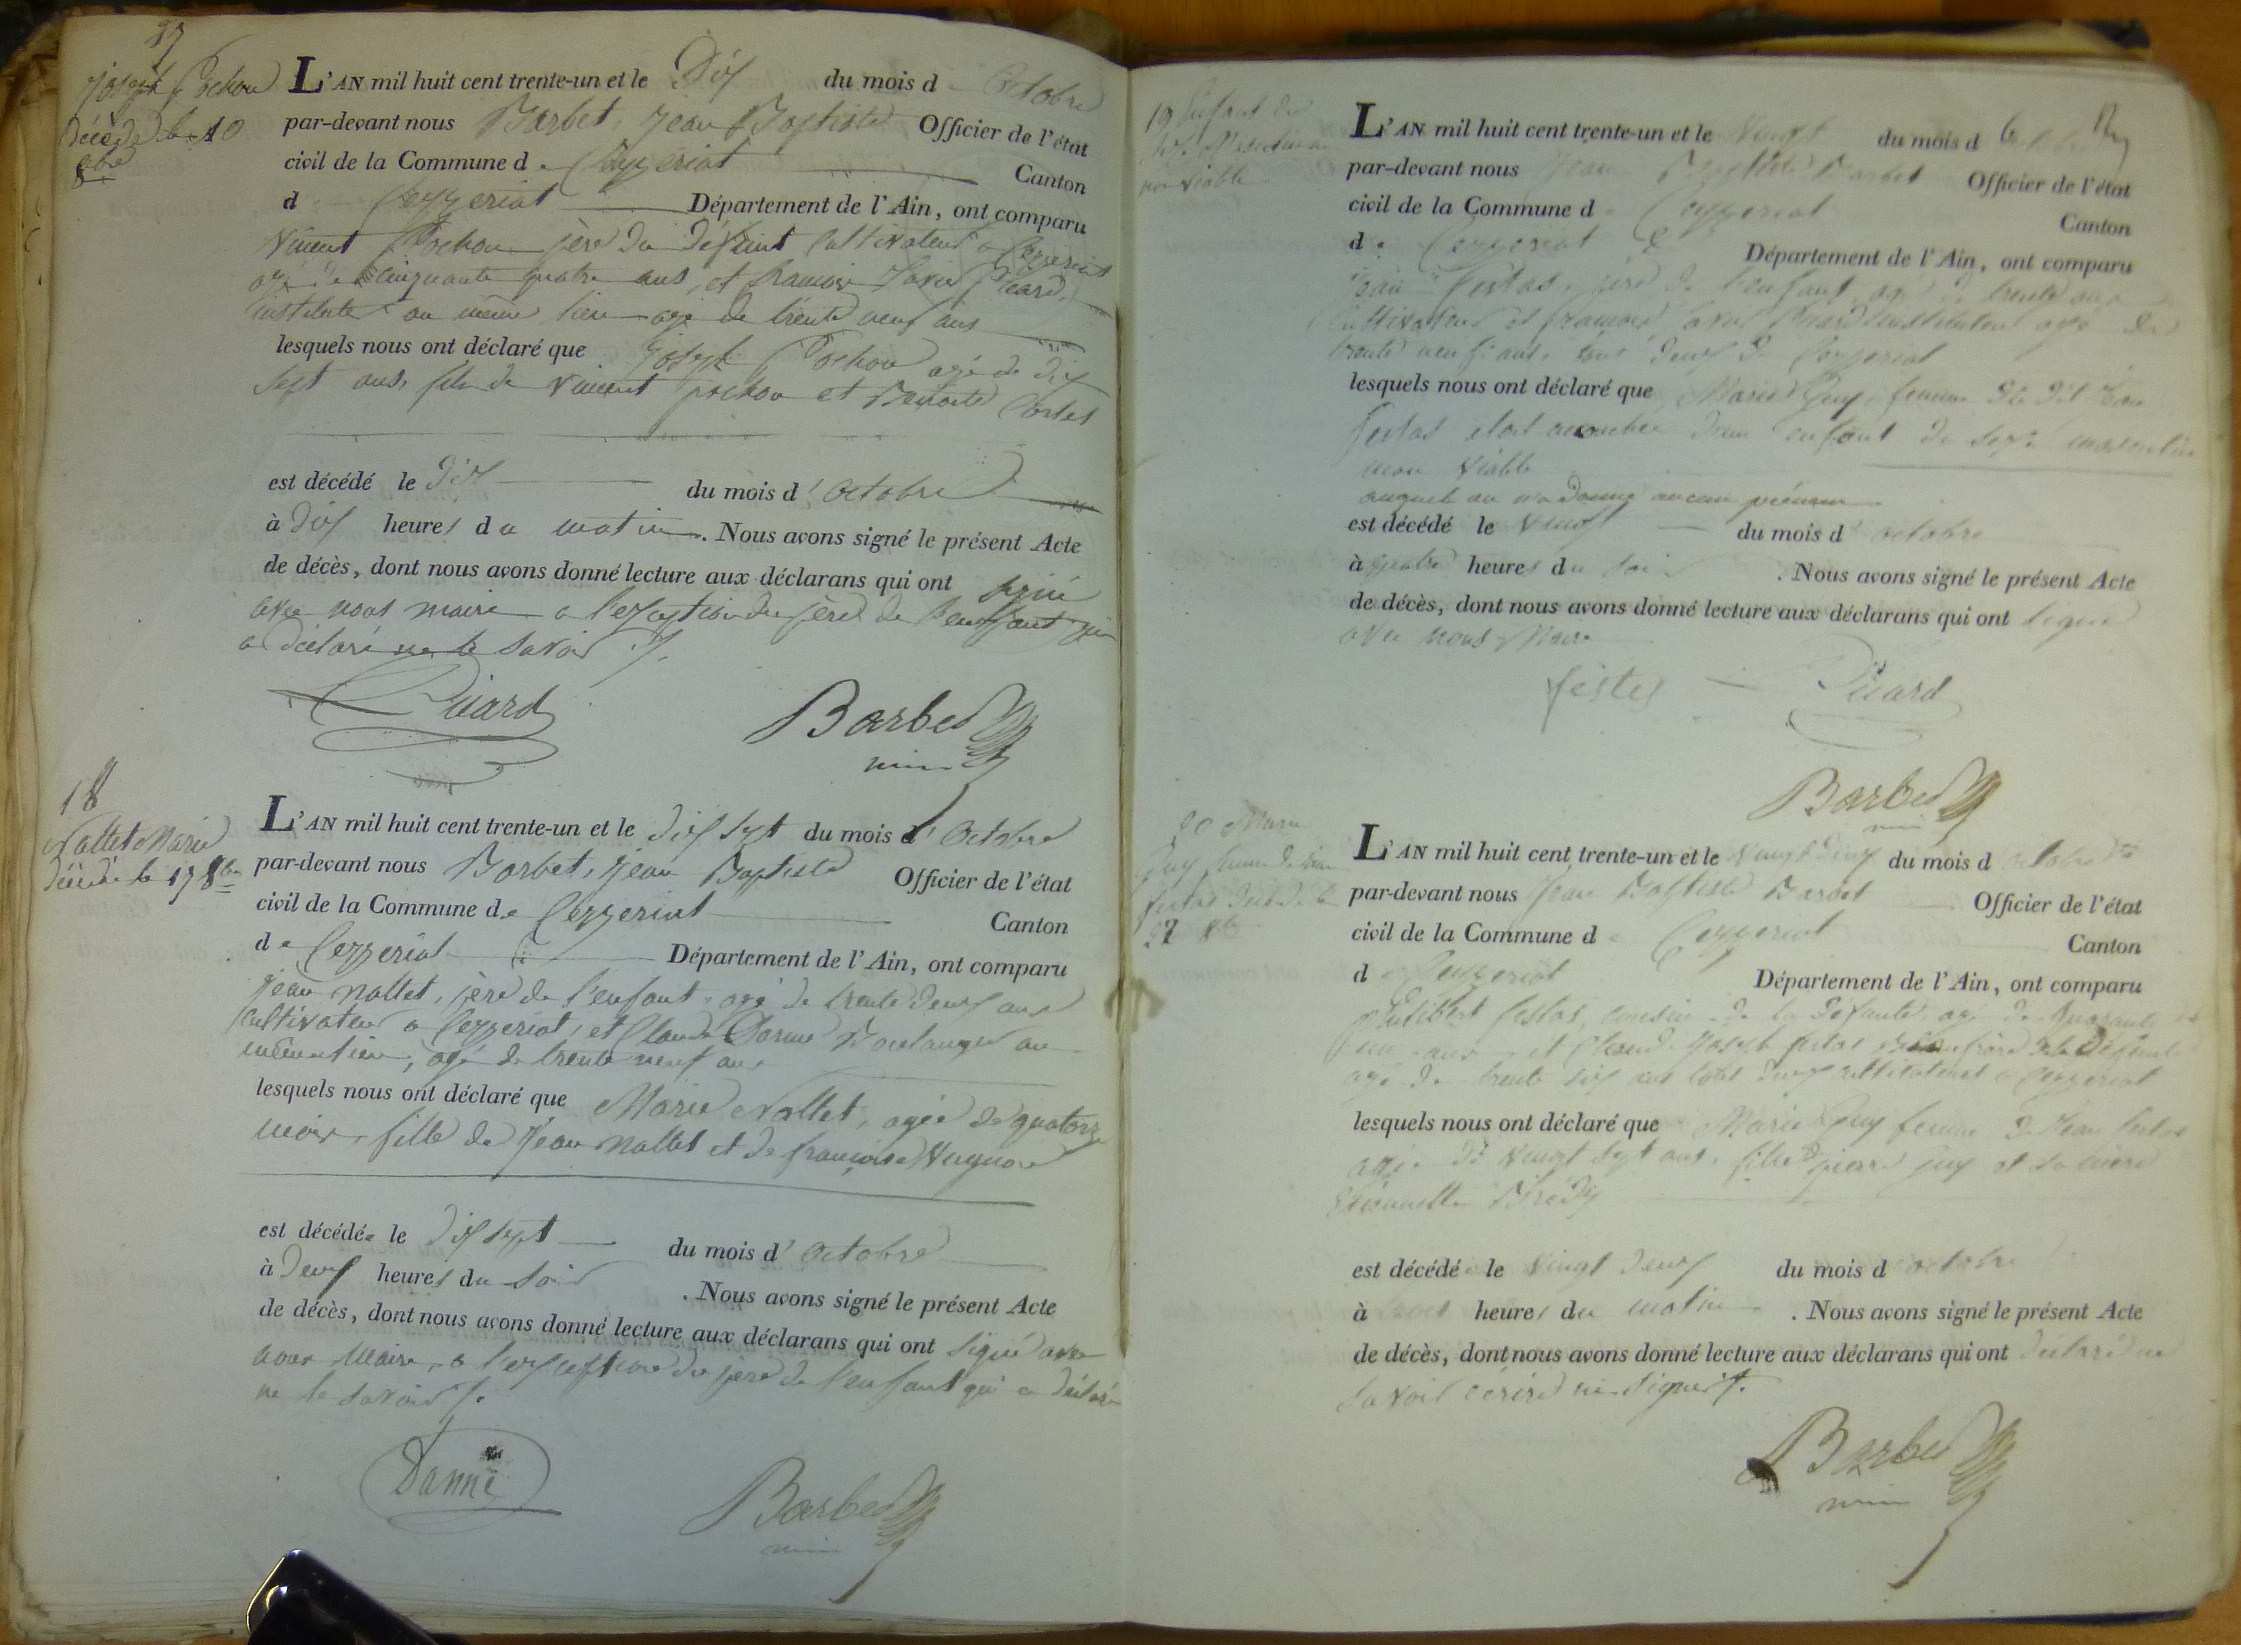 17
Joseph Pochon
Décédé le 10
8bre
L'AN mil huit cent trente-un et le Dix du mois d'Octobre
par-devant nous Barbet, Jean Baptiste Officier de l'état
civil de la Commune de Ceyzeriat Canton
de Ceyzeriat Département de l'Ain, ont comparu
Vincent Pochon père du défunt Cultivateur a Ceyzeriat
agé de cinquante quatre ans, et françois Xavier Picard
instituteur au même lieu agé de trente neuf ans
lesquels nous ont déclaré que Joseph Pochon agé de dix
sept ans, fils de Vincent pochon et Benoite
est décédé le dix du mois d'Octobre
à dix heures du matin. Nous avons signé le présent Acte
de décès, dont nous avons donné lecture aux déclarans qui ont signé
avec nous maire a l'exception du père de l'enfant qui
a déclaré ne le savoir
Picard
Barbet
maire
18
Nallet Marie
Décédé le 17 8bre
L'AN mil huit cent trente-un et le dix sept du mois d'Octobre
par-devant nous Barbet, Jean Baptiste Officier de l'état
civil de la Commune de Ceyzeriat Canton
de Ceyzeriat Département de l'Ain, ont comparu
Jean Nallet, père de l'enfant, agé de trente deux ans
Cultivateur a Ceyzeriat, et Claude Boulanger au
même lieu, agé de trente neuf ans
lesquels nous ont déclaré que Marie Nallet, agée de quatorze
mois, fille de Jean Nallet et de françoise
est décédée le dix sept du mois d'Octobre
à deux heures du soir. Nous avons signé le présent Acte
de décès, dont nous avons donné lecture aux déclarans qui ont signé avec
nous Maire, a l'exception du père de l'enfant qui a déclaré
ne le savoir
Barbet
maire
19 Enfant de
non viable
L'AN mil huit cent trente-un et le Vingt du mois d'
par-devant nous Jean Baptiste Barbet Officier de l'état
civil de la Commune de Ceyzeriat Canton
de Ceyzeriat Département de l'Ain, ont comparu
Jean festas, père de l'enfant agé de trente ans
Cultivateur et françois Xavier Picard instituteur agé de
trente neuf ans, tous deux de Ceyzeriat
lesquels nous ont déclaré que Marie Puy, femme de dit Jean
festas etoit accouchée d'un enfant de sexe masculin
non viable
auquel on n'a donné aucun prénom
est décédé le vingt du mois d'octobre
à quatre heures du soir. Nous avons signé le présent Acte
de décès, dont nous avons donné lecture aux déclarans qui ont signé
avec nous Maire
Picard
Barbet
maire
20 Marie
Puy femme de Jean
festas
8bre
L'AN mil huit cent trente-un et le Vingt deux du mois d'octobre
par-devant nous Jean Baptiste Barbet Officier de l'état
civil de la Commune de Ceyzeriat Canton
de Ceyzeriat Département de l'Ain, ont comparu
festas, cousin de la défunte, agé de quarante
un ans et Claude Joseph festas Beau frère de la défunte
agé de trente six ans tous deux cultivateurs a Ceyzeriat
lesquels nous ont déclaré que Marie Puy femme de Jean festas
agée de vingt sept ans, fille de pierre puy et sa mère
est décédée le vingt deux du mois d'octobre
à heures du matin. Nous avons signé le présent Acte
de décès, dont nous avons donné lecture aux déclarans qui ont déclaré ne
savoir écrire ni signer
Barbet
maire